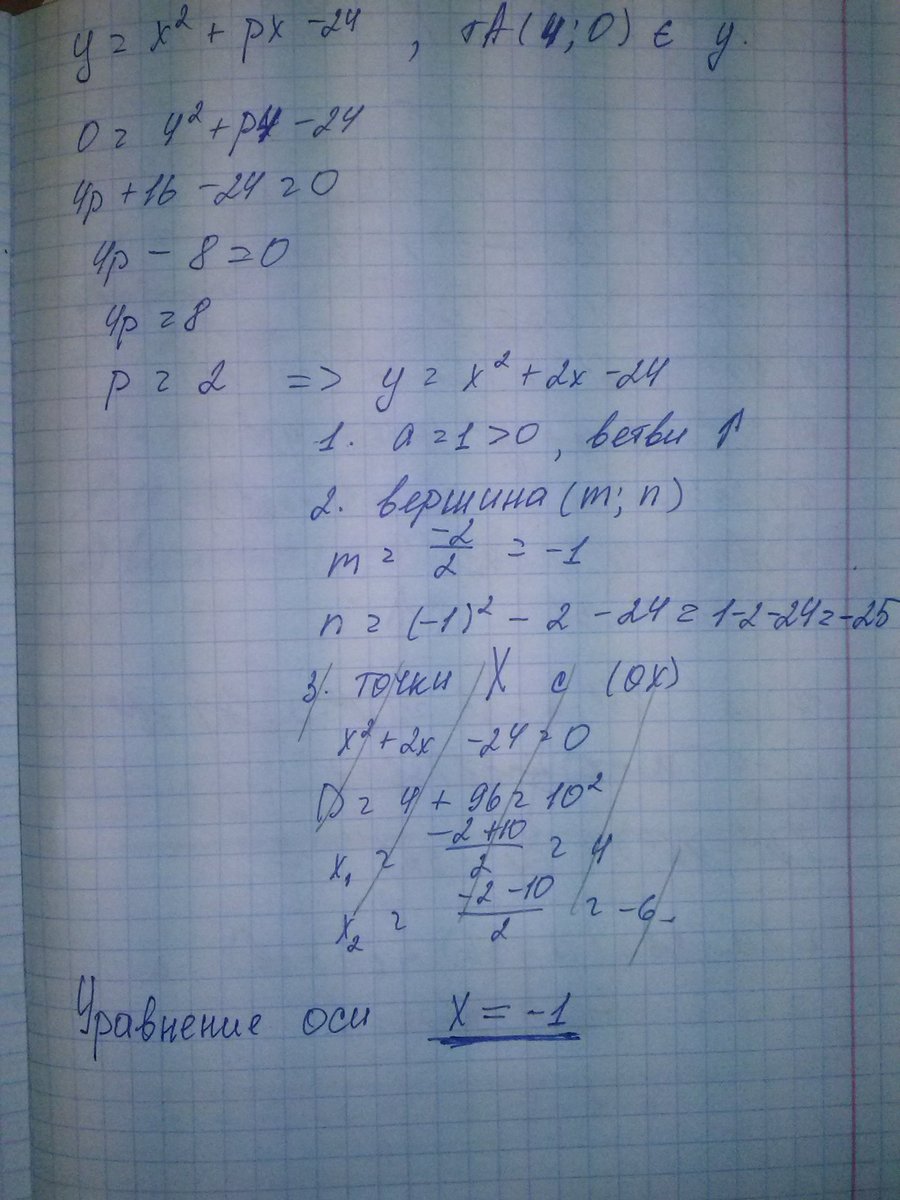 y = x² + px - 24 , тA(4; 0) ∈ y.
0 = 4² + p4 - 24
4p + 16 - 24 = 0
4p - 8 = 0
4p = 8
p = 2 => y = x² + 2x - 24
1. a = 1 > 0, ветви ↑
2. вершина (m; n)
m = -2/2 = -1
n = (-1)² - 2 - 24 = 1-2-24=-25
3. точки X с (OX)
x² + 2x - 24 = 0
D = 4 + 96 = 10²
x₁ = (-2+10)/2 = 4
x₂ = (-2-10)/2 = -6.
Уравнение оси X = -1